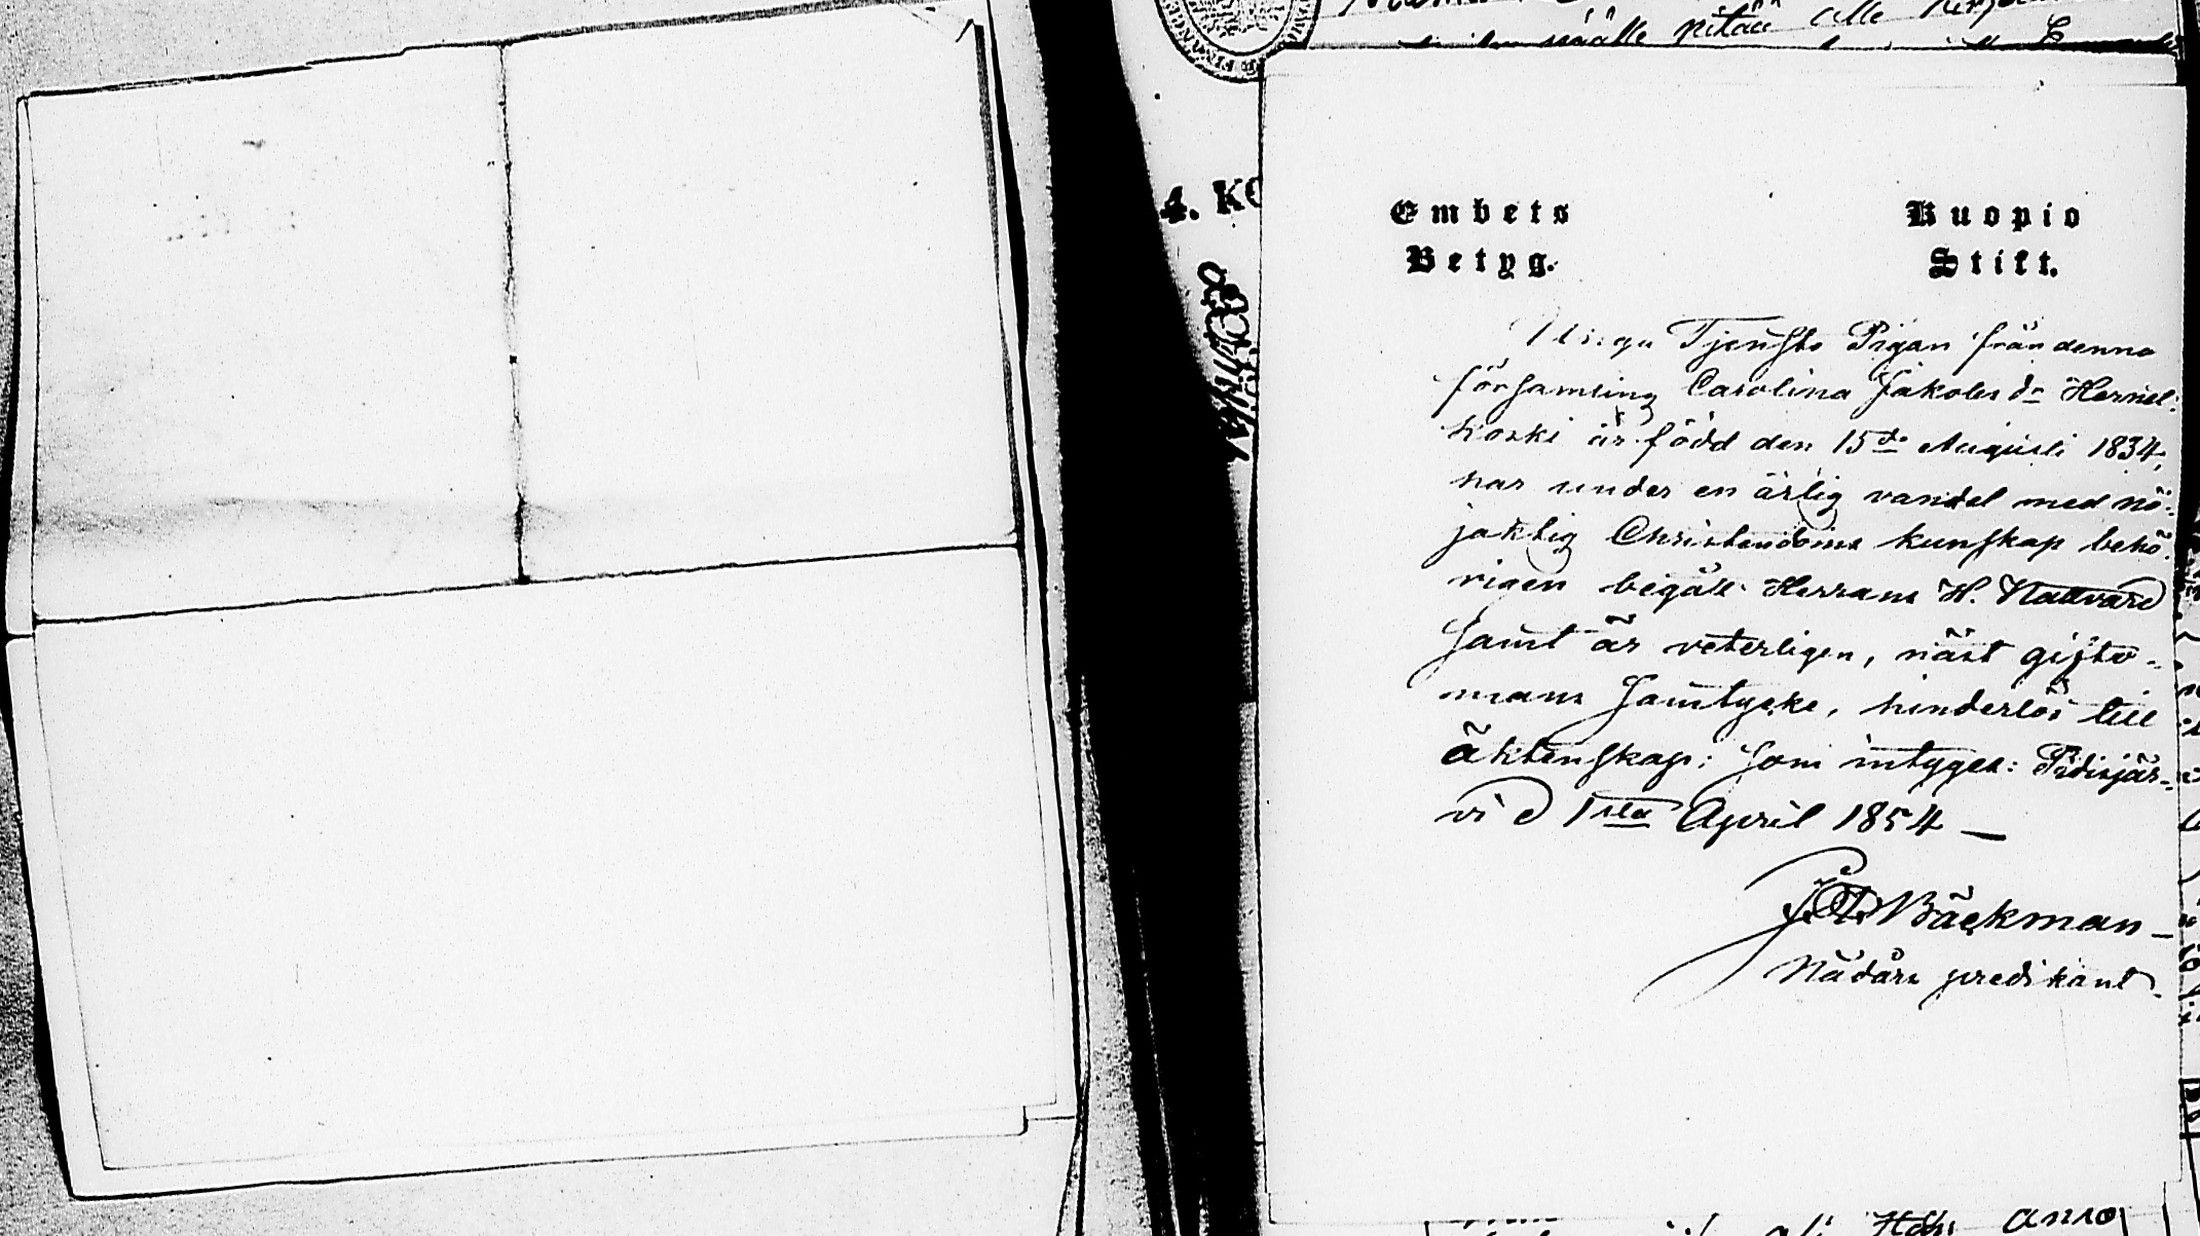 måälle pitää olle
4. KO
Embets Kuopio
Betyg. Stift.
Unga Tjensto Pigan från denna
församling Carolina Jakobs dr Hernes-
koski är född den 15de Augusti 1834,
har under en ärlig vandel med nö-
jaktig Christendoms kunskap behö-
rigen begått Herrans H. Nattvard
samt är veterligen, näst gifto-
mans samtycke, hinderlös till
äktenskap; som intygas: Pidisjär-
vi d 1sta April 1854 —
Bäckman —
Nådårs predikant.
anno